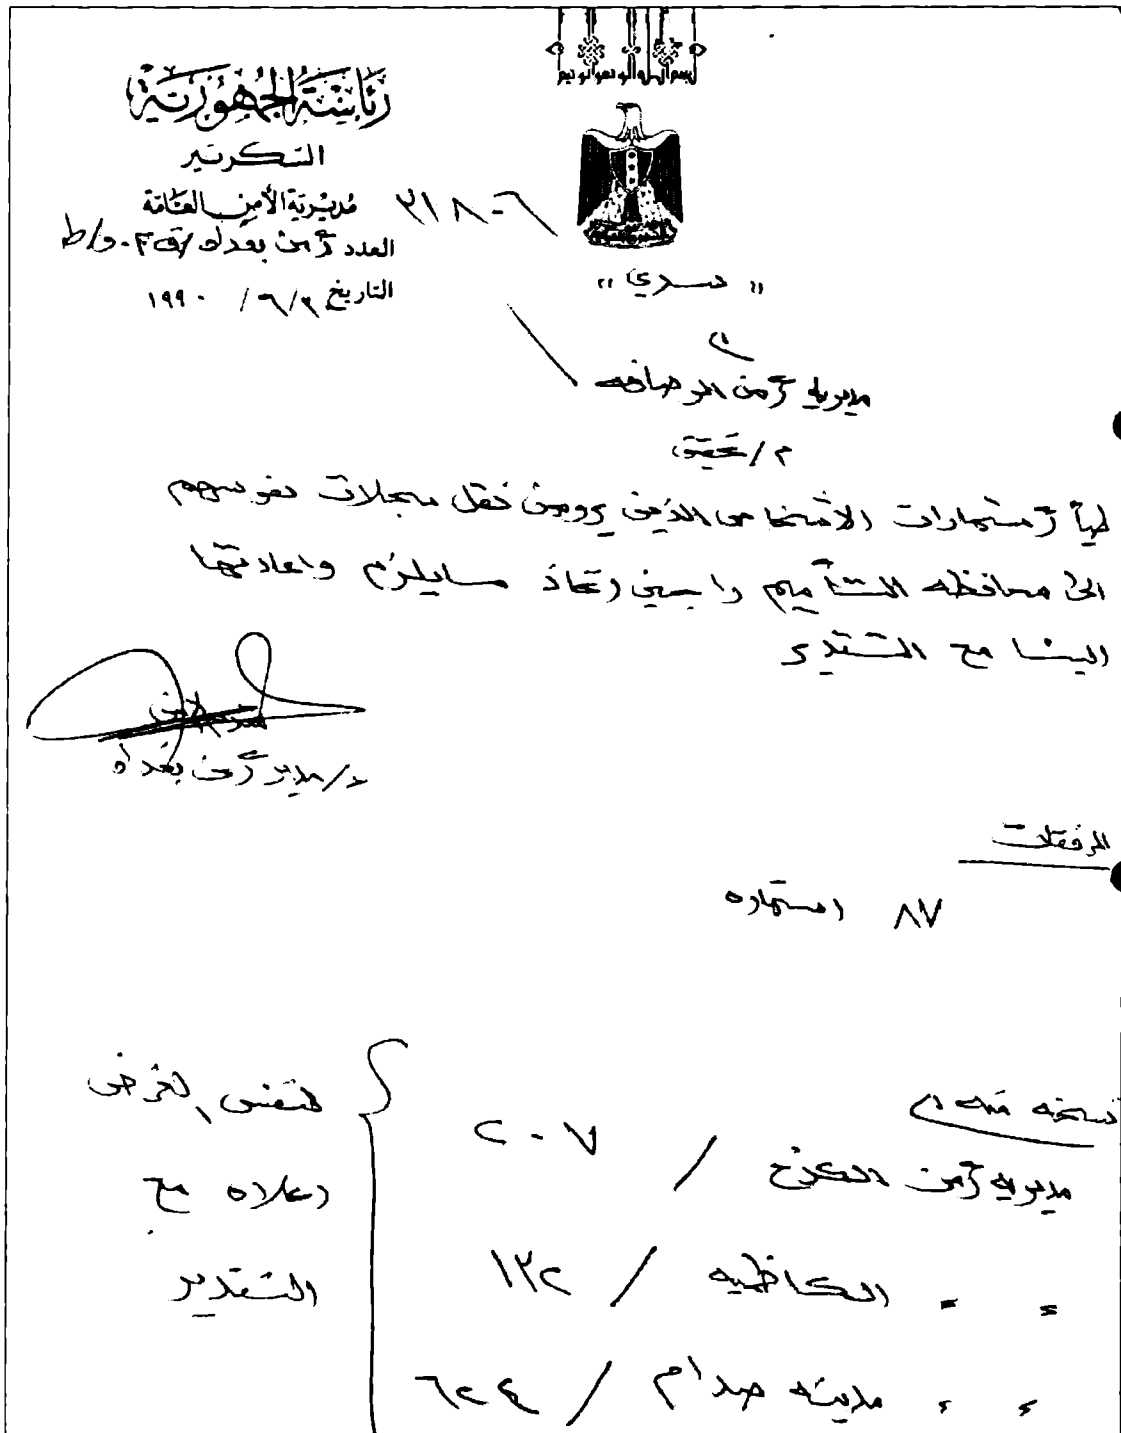 بسم الله الرحمن الرحيم
رئاسة الجمهورية
السكرتير
مديرية الأمن العامة
العدد أمن بغداد /ق ٣٠و/ط ٣١٨٠٦
التاريخ ٣/٦/ ١٩٩٠
" سري "
مديريه أمن الرصافه
م/ تحقيق
طياً أستمارات الأشخاص الذين يرومون نقل سجلات نفوسهم
الى محافظه التأميم راجين اتخاذ مايلزم واعادتها
الينا مع التقدير
ع/مدير أمن بغداد
المرفقات
٨٧ استماره
نسخه منه الى
مديريه أمن الكرخ / ٢٠٧
= = الكاظميه / ١٣٢
= = مدينه صدام / ٦٢٤
لنفس الغرض
اعلاه مع
التقدير